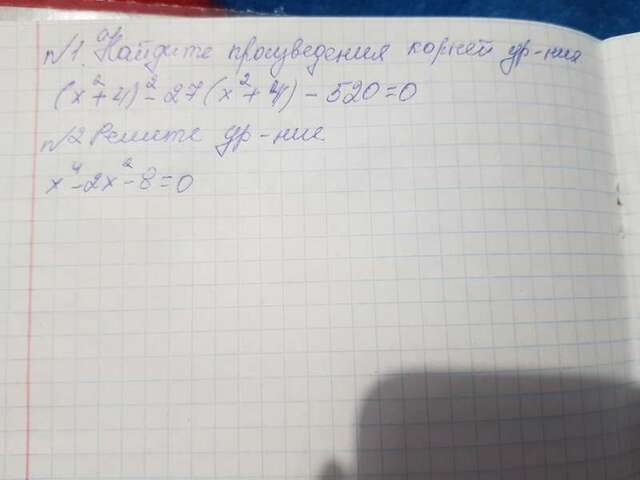 №1 а) Найдите произведения корней ур-ния
(x²+4)²-27(x²+4)-520=0
№2 Решите ур-ние
x⁴-2x²-8=0